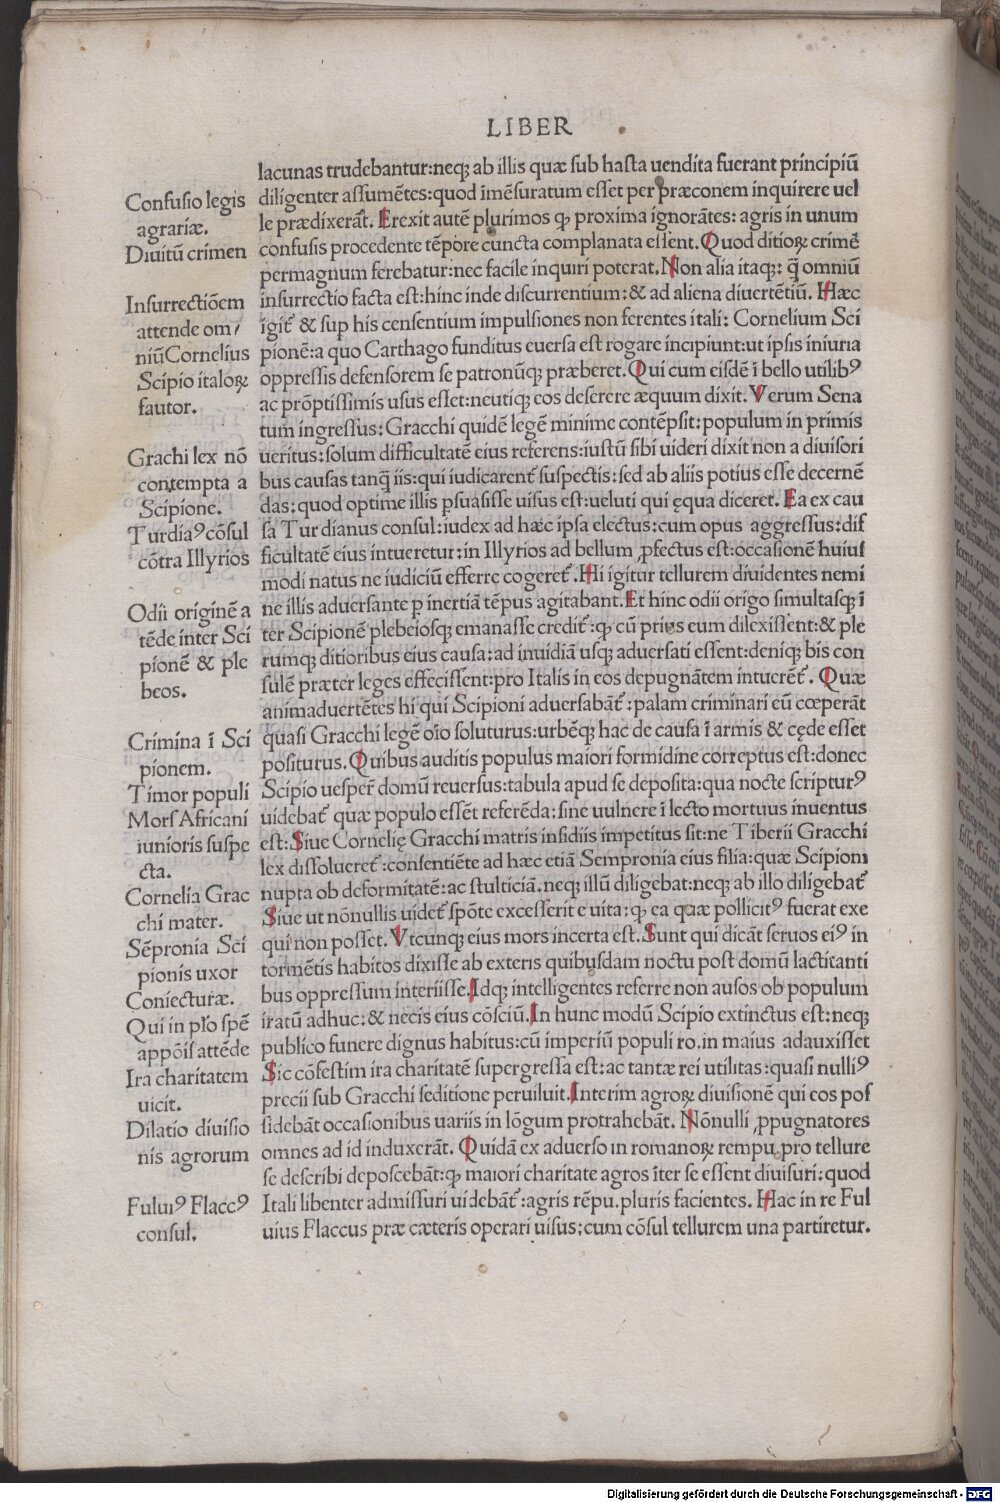 LIBER
lacunas trudebantur:neq; ab illis quæ sub hasta uendita fuerant principiū
diligenter assumētes:quod īmēsuratum esset per præconem inquirere uel
le prædixerāt. Erexit autē plurimos ꝙ proxima ignorātes: agris in unum
confusis procedente tēpore cuncta complanata essent. Quod ditioꝝ crimē
permagnum ferebatur:nec facile inquiri poterat. Non alia itaq;: q̄ omniū
insurrectio facta est:hinc inde discurrentium:& ad aliena diuertētiū. Hæc
igit̄ & sup his censentium impulsiones non ferentes itali: Cornelium Sci
pionē:a quo Carthago funditus euersa est rogare incipiunt:ut ipsis iniuria
oppressis defensorem se patronūq; præberet. Qui cum eisdē ī bello utilibꝰ
ac prōptissimis usus esset:neutiq; eos deserere æquum dixit. Verum Sena
tum ingressus: Gracchi quidē legē minime contēpsit: populum in primis
ueritus:solum difficultatē eius referens:iustū sibi uideri dixit non a diuisori
bus causas tanq̄ iis:qui iudicarent̄ suspectis:sed ab aliis potius esse decernē
das:quod optime illis psuasisse uisus est:ueluti qui ęqua diceret. Ea ex cau
sa Turdianus consul:iudex ad hæc ipsa electus:cum opus aggressus:dif
ficultatē eius intueretur:in Illyrios ad bellum ꝓfectus est:occasionē huius
modi natus ne iudiciū efferre cogeret̄. Hi igitur tellurem diuidentes nemi
ne illis aduersante p inertiā tēpus agitabant. Et hinc odii origo simultasq; ī
ter Scipionē plebeiosq; emanasse credit̄: ꝙ cū prius eum dilexissent:& ple
rumq; ditioribus eius causa:ad inuidiā usq; aduersati essent:deniq; bis con
sulē præter leges effecissent:pro Italis in eos depugnātem intuerēt̄. Quæ
animaduertētes hi qui Scipioni aduersabāt̄:palam criminari eū cœperāt
quasi Gracchi legē oīo soluturus:urbēq; hac de causa ī armis & cęde esset
positurus. Quibus auditis populus maiori formidine correptus est:donec
Scipio uesper̄ domū reuersus:tabula apud se deposita:qua nocte scripturꝰ
uidebat̄ quæ populo essēt referēda:sine uulnere ī lecto mortuus inuentus
est:Siue Cornelię Gracchi matris insidiis impetitus sit:ne Tiberii Gracchi
lex dissolueret̄:consentiēte ad hæc etiā Sempronia eius filia:quæ Scipioni
nupta ob deformitatē:ac stulticiā.neq; illū diligebat:neq; ab illo diligebat̄
Siue ut nōnullis uidet̄ spōte excesserit e uita:ꝙ ea quæ pollicitꝰ fuerat exe
qui non posset. Vtcunq; eius mors incerta est. Sunt qui dicāt seruos eiꝰ in
tormētis habitos dixisse ab exteris quibusdam noctu post domū lactitanti
bus oppressum interiisse. Idq; intelligentes referre non ausos ob populum
iratū adhuc:& necis eius cōsciū. In hunc modū Scipio extinctus est:neq;
publico funere dignus habitus:cū imperiū populi ro.in maius adauxisset
Sic cōfestim ira charitatē supergressa est:ac tantæ rei utilitas:quasi nulliꝰ
precii sub Gracchi seditione peruiluit. Interim agroꝝ diuisionē qui eos pos
sidebāt occasionibus uariis in lōgum protrahebāt. Nōnulli ꝓpugnatores
omnes ad id induxerāt. Quidā ex aduerso in romanoꝝ rempu.pro tellure
se describi deposcebāt:ꝙ maiori charitate agros īter se essent diuisuri:quod
Itali libenter admissuri uidebāt̄:agris rēpu.pluris facientes. Hac in re Ful
uius Flaccus præ cæteris operari uisus:cum cōsul tellurem una partiretur.
Confusio legis
agrariæ.
Diuitū crimen
Insurrectiōem
attende om/
niū Cornelius
Scipio italoꝝ
fautor.
Grachi lex nō
contempta a
Scipione.
Turdiaꝰ cōsul
cōtra Illyrios
Odii originē a
tēde inter Sci
pionē & ple
beos.
Crimina ī Sci
pionem.
Timor populi
Mors Africani
iunioris suspe
cta.
Cornelia Grac
chi mater.
Sēpronia Sci
pionis uxor
Coniecturæ.
Qui in plo spē
appōis attēde
Ira charitatem
uicit.
Dilatio diuisio
nis agrorum
Fuluiꝰ Flaccꝰ
consul.
Digitalisierung gefördert durch die Deutsche Forschungsgemeinschaft - DFG